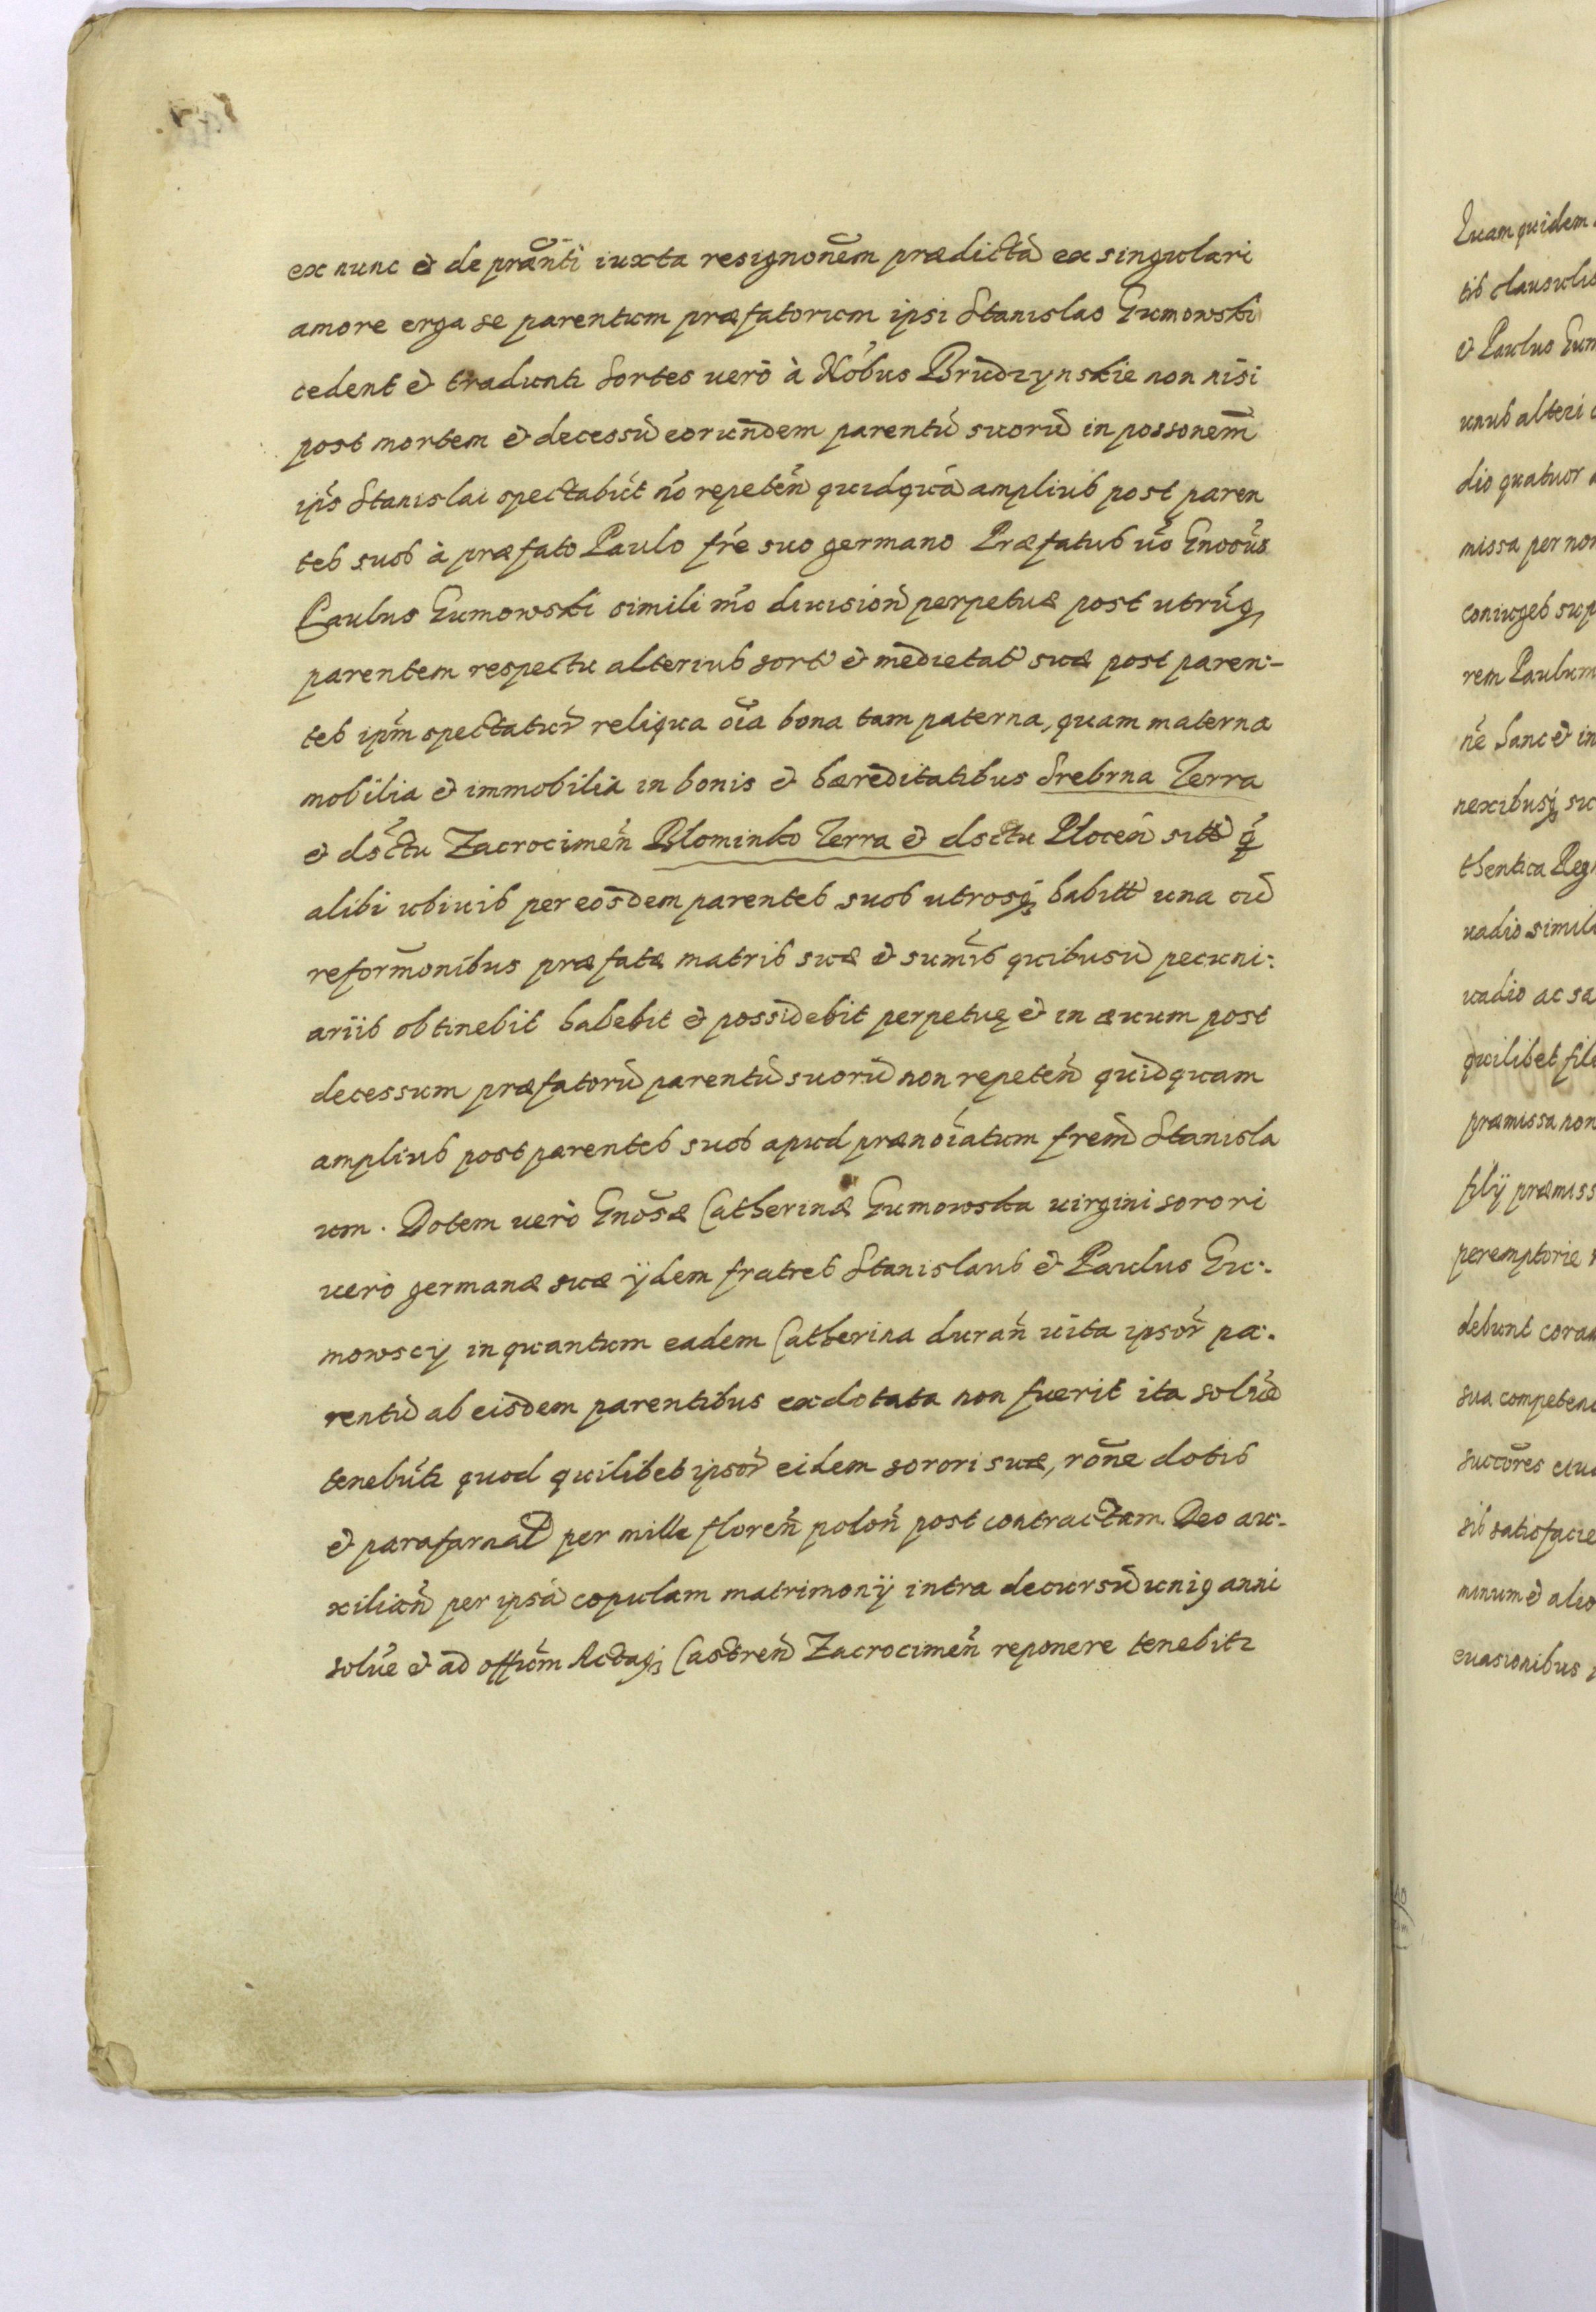 ex nunc et de prãnti iuxta resignonẽm prædictã ex singulari
amore erga se parentum præfatorum ipsi Stanislao Gumowski
cedent et tradunt Sortes uerò à Nobus Brudzynskie non nisi
post mortem et decessũ eorundem parentũ suorũ in possonem̃
ipŝ Stanislai spectabũt nõ repeteñ quidquã amplius post paren
tes suos à præfato Paulo frẽ suo germano Præfatus ũo Gnosũs
Paulus Gumowski simili mõ diuisioñ perpetuæ post utrũq
parentem respectu alterius sort et medietat suæ post paren-
tes ipm̃ spectatur reliqua oĩa bona tam paterna, quam materna
mobilia et immobilia in bonis et hæreditatibus Srebrna Terra
et dsc̃tu Zacrocimeñ Blominko Terra et dsctu Ploceñ sitt q̃
alibi ubiuis per eosdem parentes suos utrosq habitt una cũ
reformonibus præfatæ matris suæ et sumĩs quibusũ pecuni:
ariis obtinebit habebit et possidebit perpetuę et in æuum post
decessum præfatorũ parentũ suorũ non repeteñ quidquam
amplius post parentes suos apud prænoĩatum frem̃ Stanisla
um. Dotem uerò Gnõsæ Catherinæ Gumowska uirgini sorori
uero germanæ suæ ijdem fratres Stanislaus et Paulus Gu:
mowscij in quantum eadem Catherina durañ uita ipsor̃ pa:
rentũ ab eisdem parentibus exdotata non fuerit ita soluẽ
tenebũt quod quilibet ipsor̃ eidem sorori suæ, rõne dotis
et parafarnal per mille floreñ poloñ post contractam Deo au:
xiliañ per ipsã copulam matrimonij intra decursũ unig anni
soluẽ et ad offiũm Actaq Castreñ Zacrocimeñ reponere tenebit
Quam quidem
tis clausulis
et Paulus Gum
unus alteri
dio quatuor
missa per non
coniuges sup
rem Paulum
nẽ Sanc et in
nexibusq su
thentica Reg
uadio simil
uadio ac sa
quilibet fil
præmissa non
filij præmiss
peremptorie
debunt coram
sua competen
succõres eiu
sis satisfacie
minum et alio
euasionibus